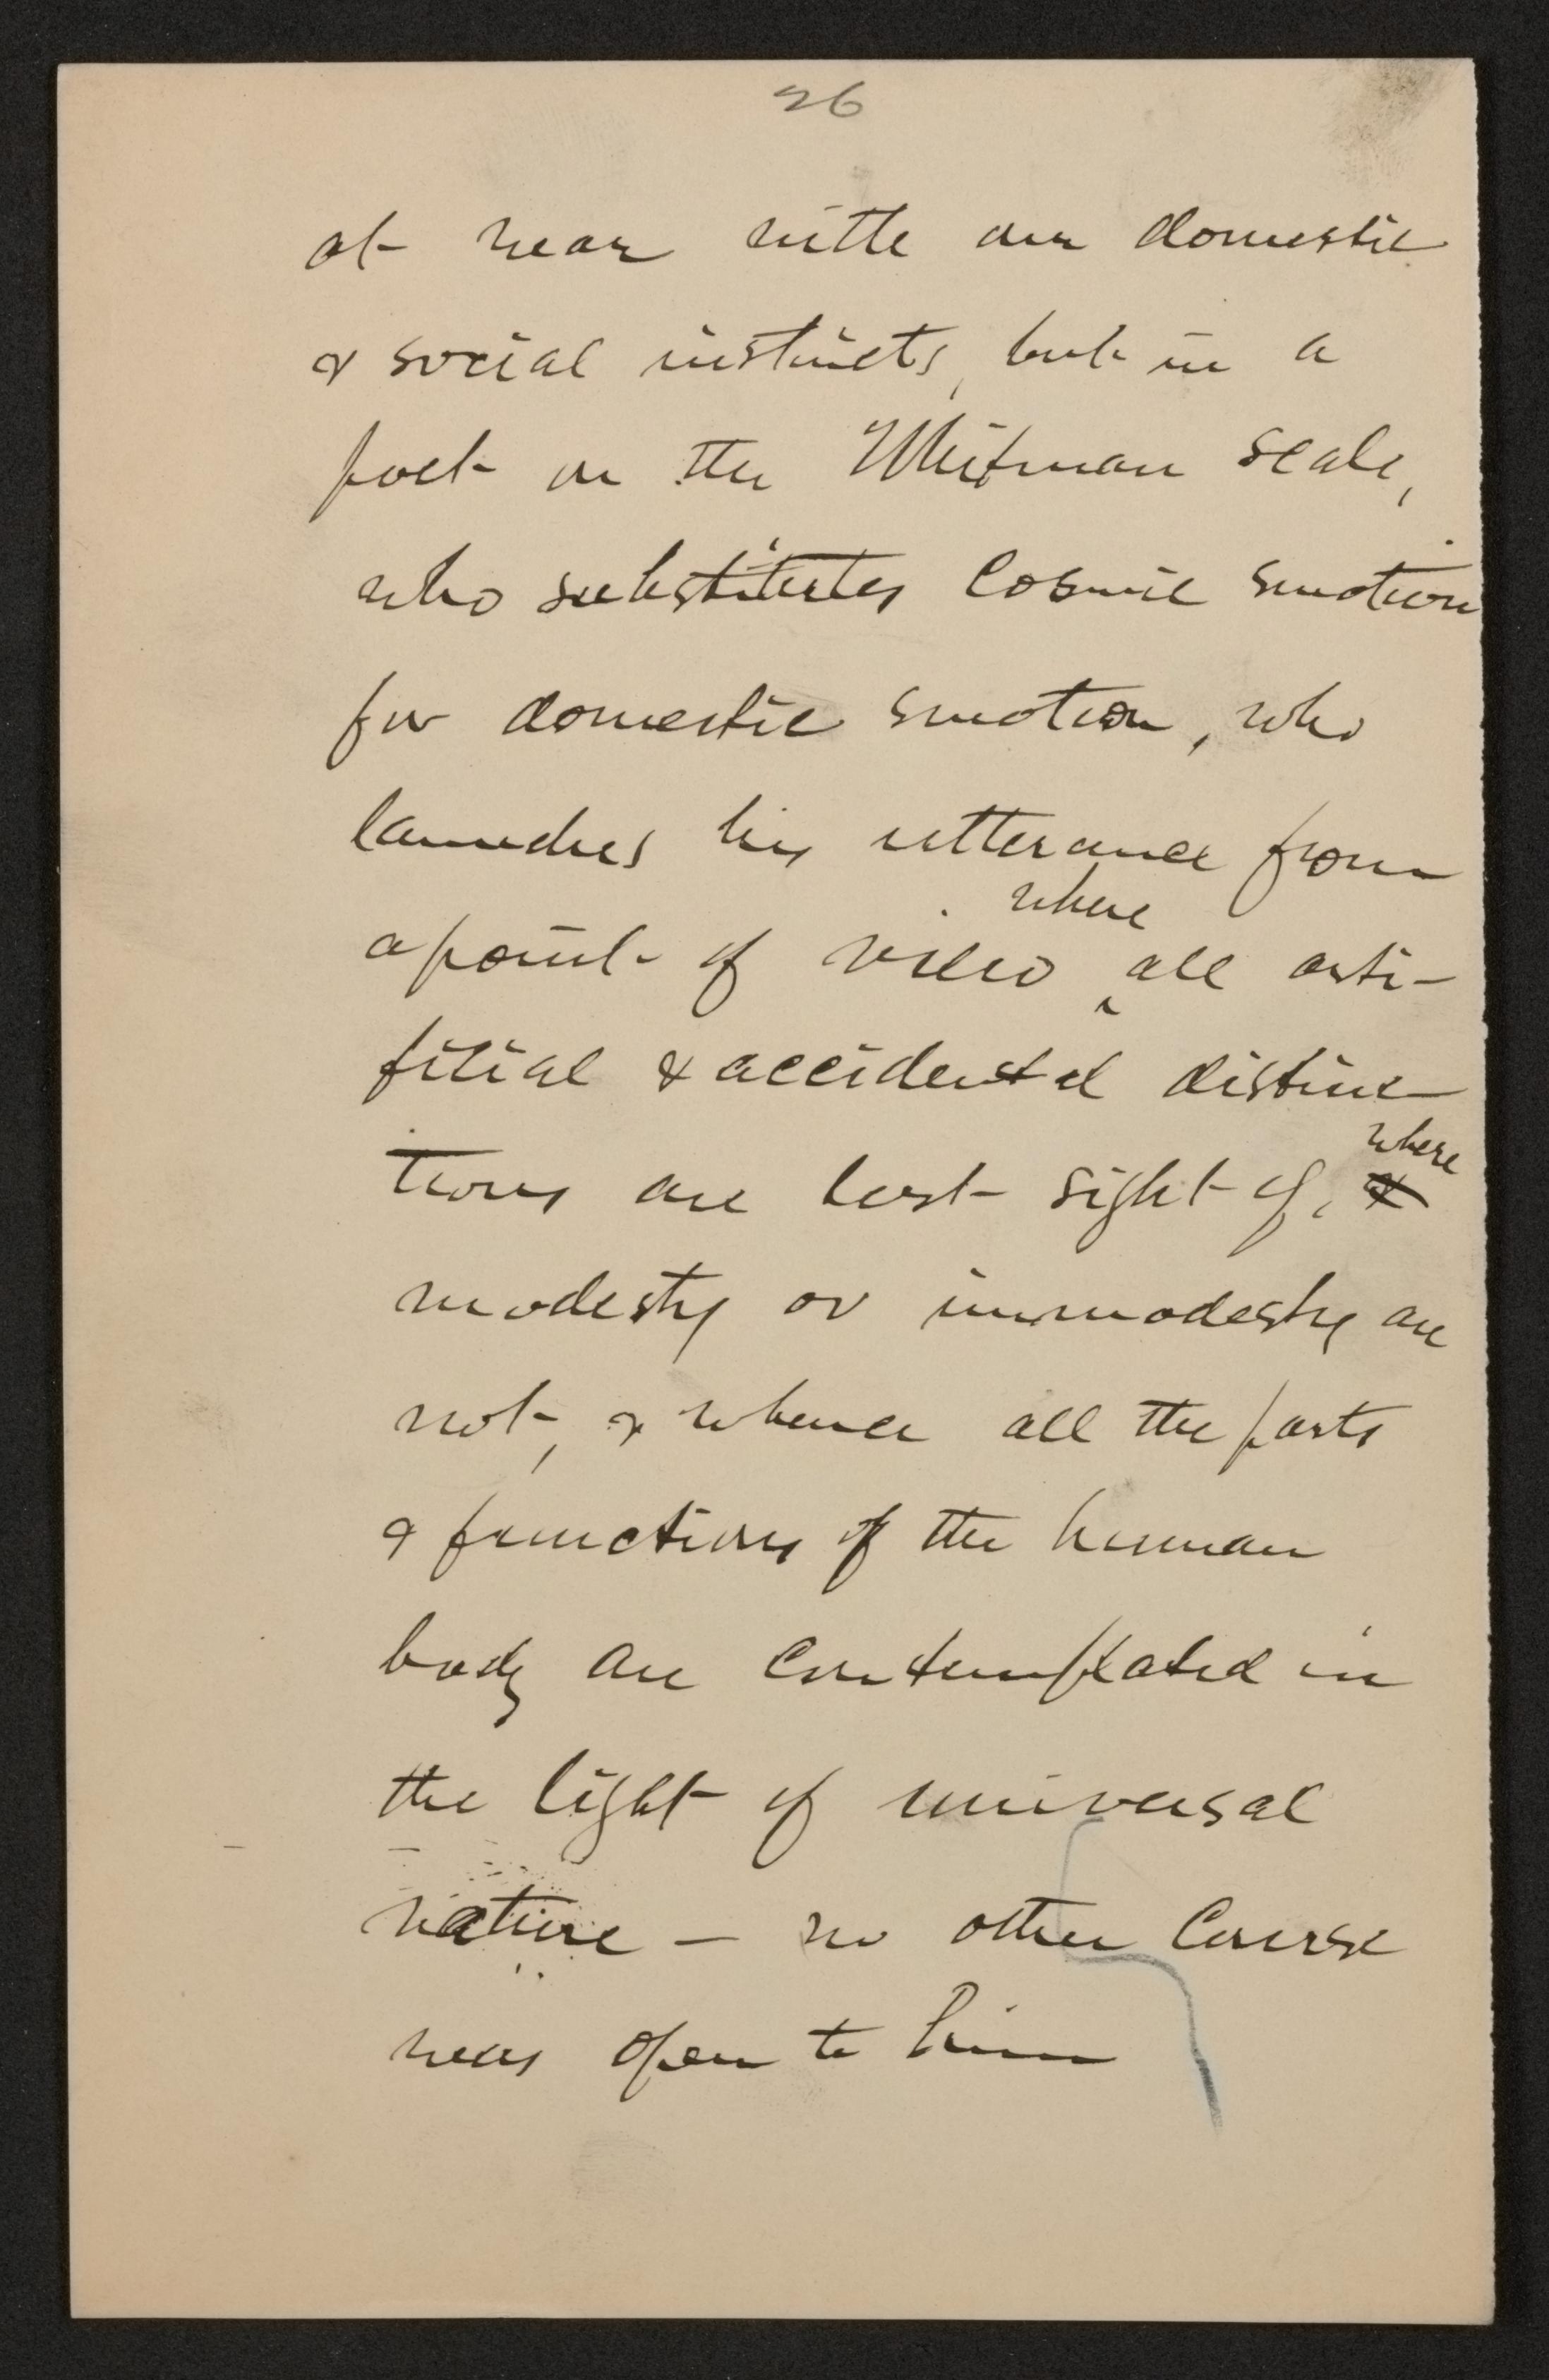 26
at war with our domestic
& social instincts, but in a
poet on the Whitman scale,
who substitutes cosmic emotion
for domestic emotion, who
launches his utterance from
where
a point of view all arti-
ficial & accidental distinc
where
tions are lost sight of, &
modesty or immodesty are
not, & whence all the parts
& functions of the human
body are contemplated in
the light of universal
nature — no other course
was open to him